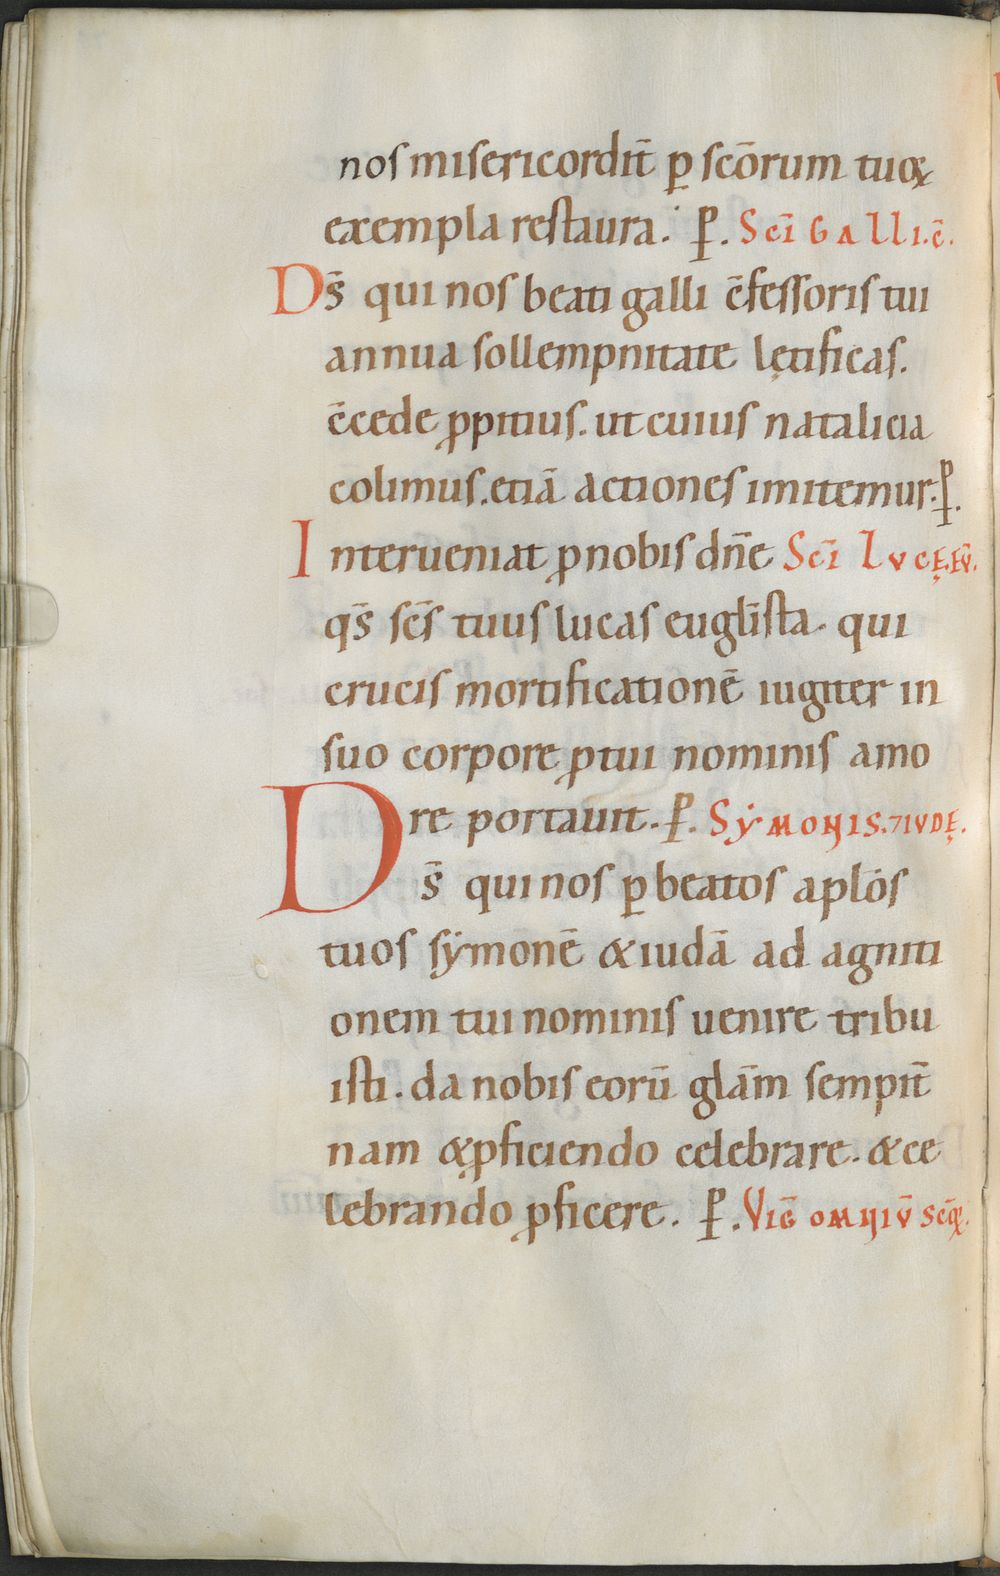 nos misericordit̄ ꝑ scōrum tuoꝝ
exempla restaura. ꝑ. Sc̄i Galli. c̄.
Ds̄ qui nos beati galli c̄fessoris tui
annua sollempnitate lętificas.
c̄cede ꝓpitius. ut cuius natalicia
colimus. etiā actiones imitemur. ꝑ.
Interueniat ꝓ nobis dn̄e Sc̄i Lucę. Eū.
qs̄ sc̄s tuus lucas eugl̄ista. qui
crucis mortificationē iugiter in
suo corpore ꝓ tui nominis amo
re portauit. ꝑ. Sẏmonis. ⁊ Iudę.
Ds̄ qui nos ꝑ beatos aplōs
tuos sẏmonē & iudā ad agniti
onem tui nominis uenire tribu
isti. da nobis eorū glām sempit̄
nam & ꝓficiendo celebrare. & ce
lebrando ꝓficere. ꝑ. Vig̅ omniū sc̄oꝝ.